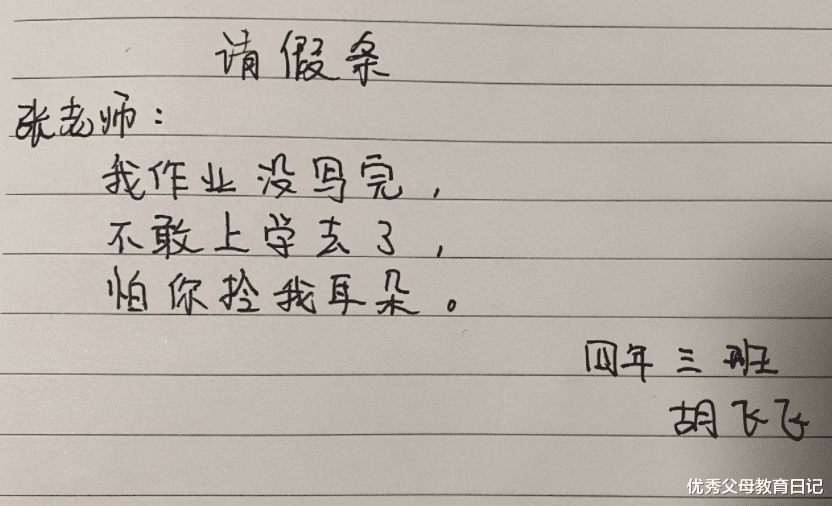 请假条
张老师：
我作业没写完，
不敢上学去了，
怕你拎我耳朵。
四年三班
胡飞飞
优秀父母教育日记